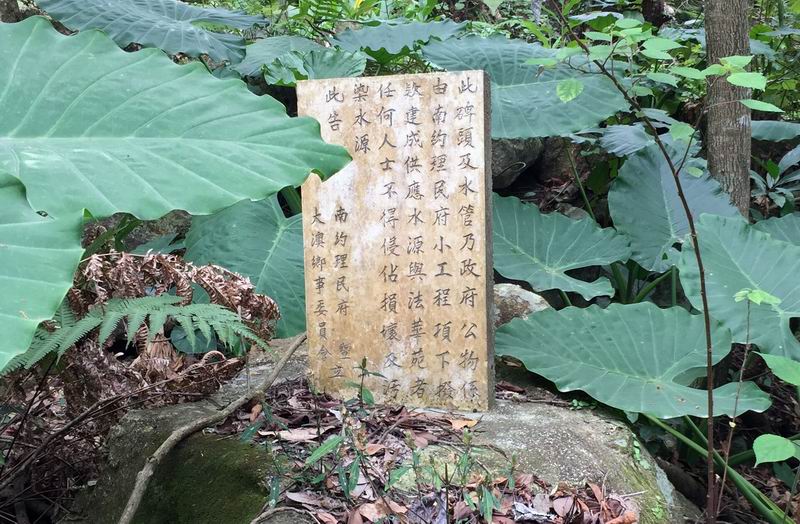 此碑頭及水管乃政府公物係
由南約理民府小工程項下撥
欵建成供應水源與法華苑者
任何人士不得侵佔損壞及汚
染水源
此告
南約理民府
大澳鄉事委員會
竪立